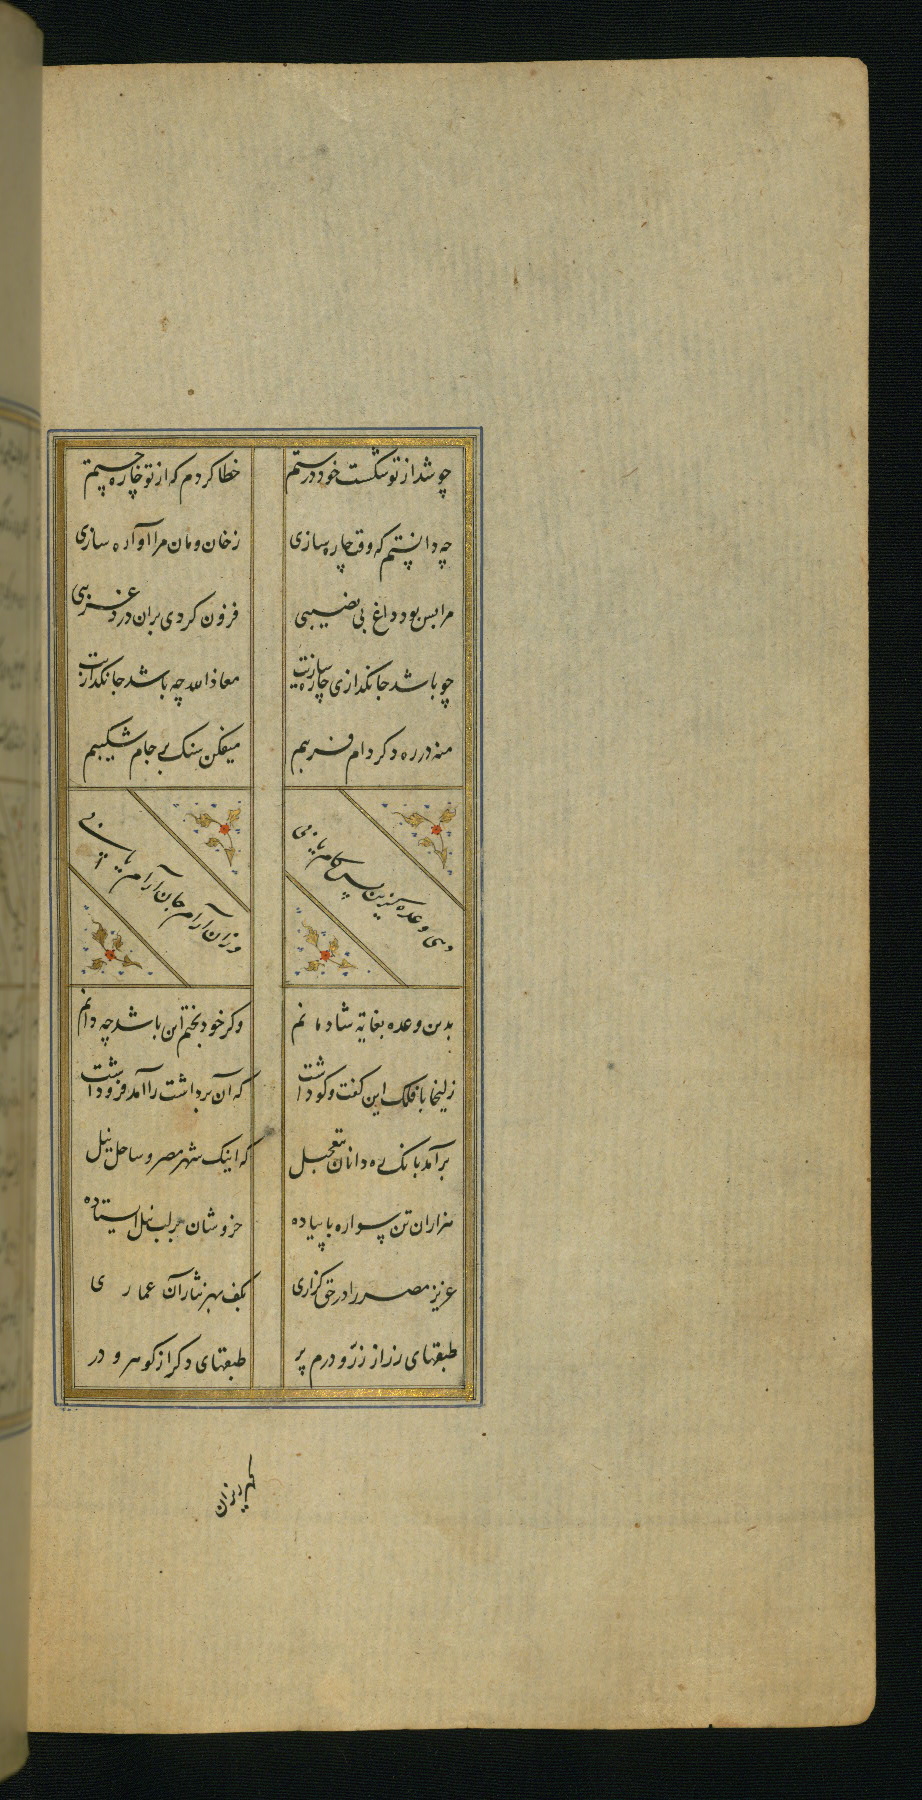 چو شد از تو شکست خود درستم
خطا کردم که از تو چاره جستم
چه دانستم که وقت چاره سازی
ز خان و مان مرا آواره سازی
مرا بس بود داغ بی نصیبی
فزون کردی بران درد غریبی
چو باشد جانکدازی چاره سازیت
معاذ الله چه باشد جانکدازیت
منه در ره دکر دام فریبم
میفکن سنک بر جام شکیبم
دهی وعده کزین پس کام یابی
وزان آرام جان آرام یابی
بدین وعده بغایه شادمانم
وکر خود بختم این باشد چه دانم
زلیخا با فلک این کفت وکو داشت
که آن برداشت را آمد فروداشت
برآمد بانک ره دانان بتعجیل
که اینک شهر مصر و ساحل نیل
هزاران تن سواره یا پیاده
خروشان بر لب نیل ایستاده
عزیز مصر را در حق کزاری
بکف بهر نثار آن عماری
طبقهای زر از زر و درم پر
طبقهای دکر از کوهر و در